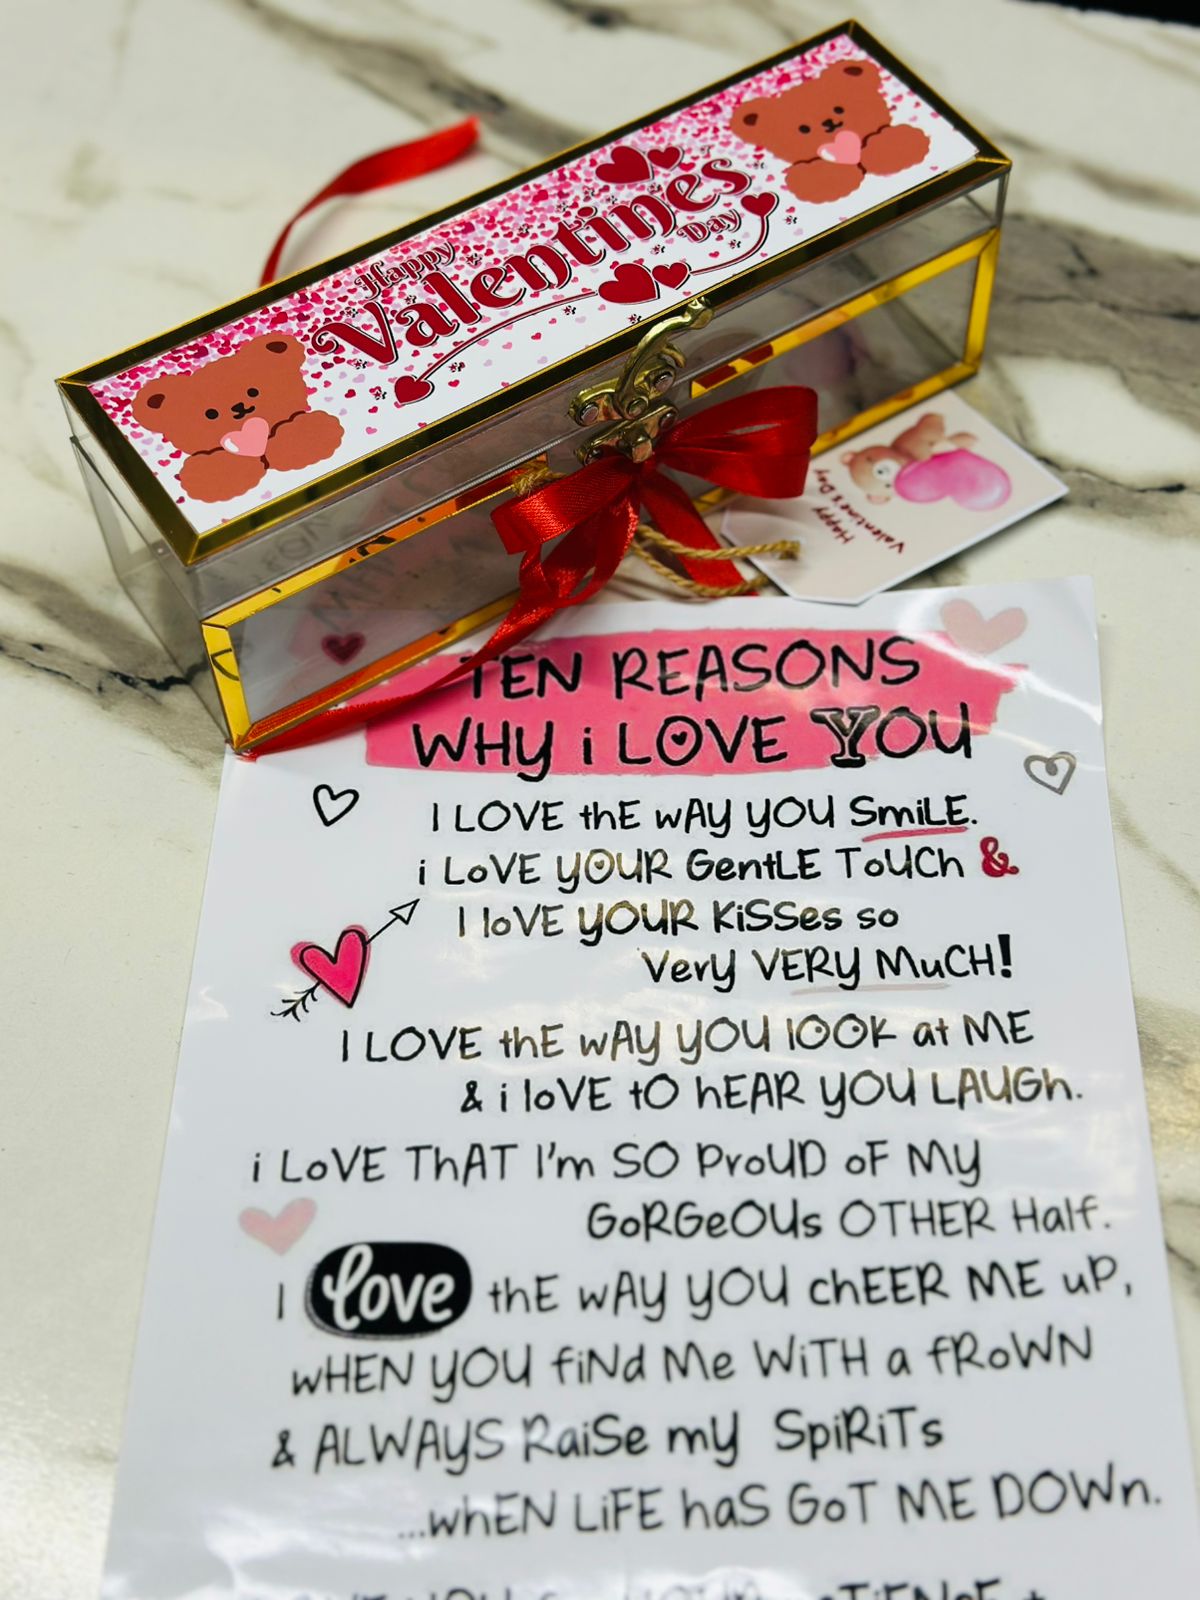 Happy
Valentines
Day
Happy
Valentine's Day
TEN REASONS
WHY i LOVE YOU
I LOVE thE wAY YOU SmiLE.
i LoVE YOUR GentLE ToUCh &
I loVE YOUR KiSSes so
VerY VERY MuCH!
I LOVE thE wAY YOU lOOK at ME
& i loVE tO hEAR YOU LAUGh.
i LoVE ThAT I'm SO ProUD oF MY
GoRGeOUs OTHER Half.
I love thE wAY YOU chEER ME uP,
wHEN YOU fiNd Me WiTH a fRoWN
& ALWAYS RaiSe mY SpiRiTs
...whEN LiFE haS GoT ME DOWn.